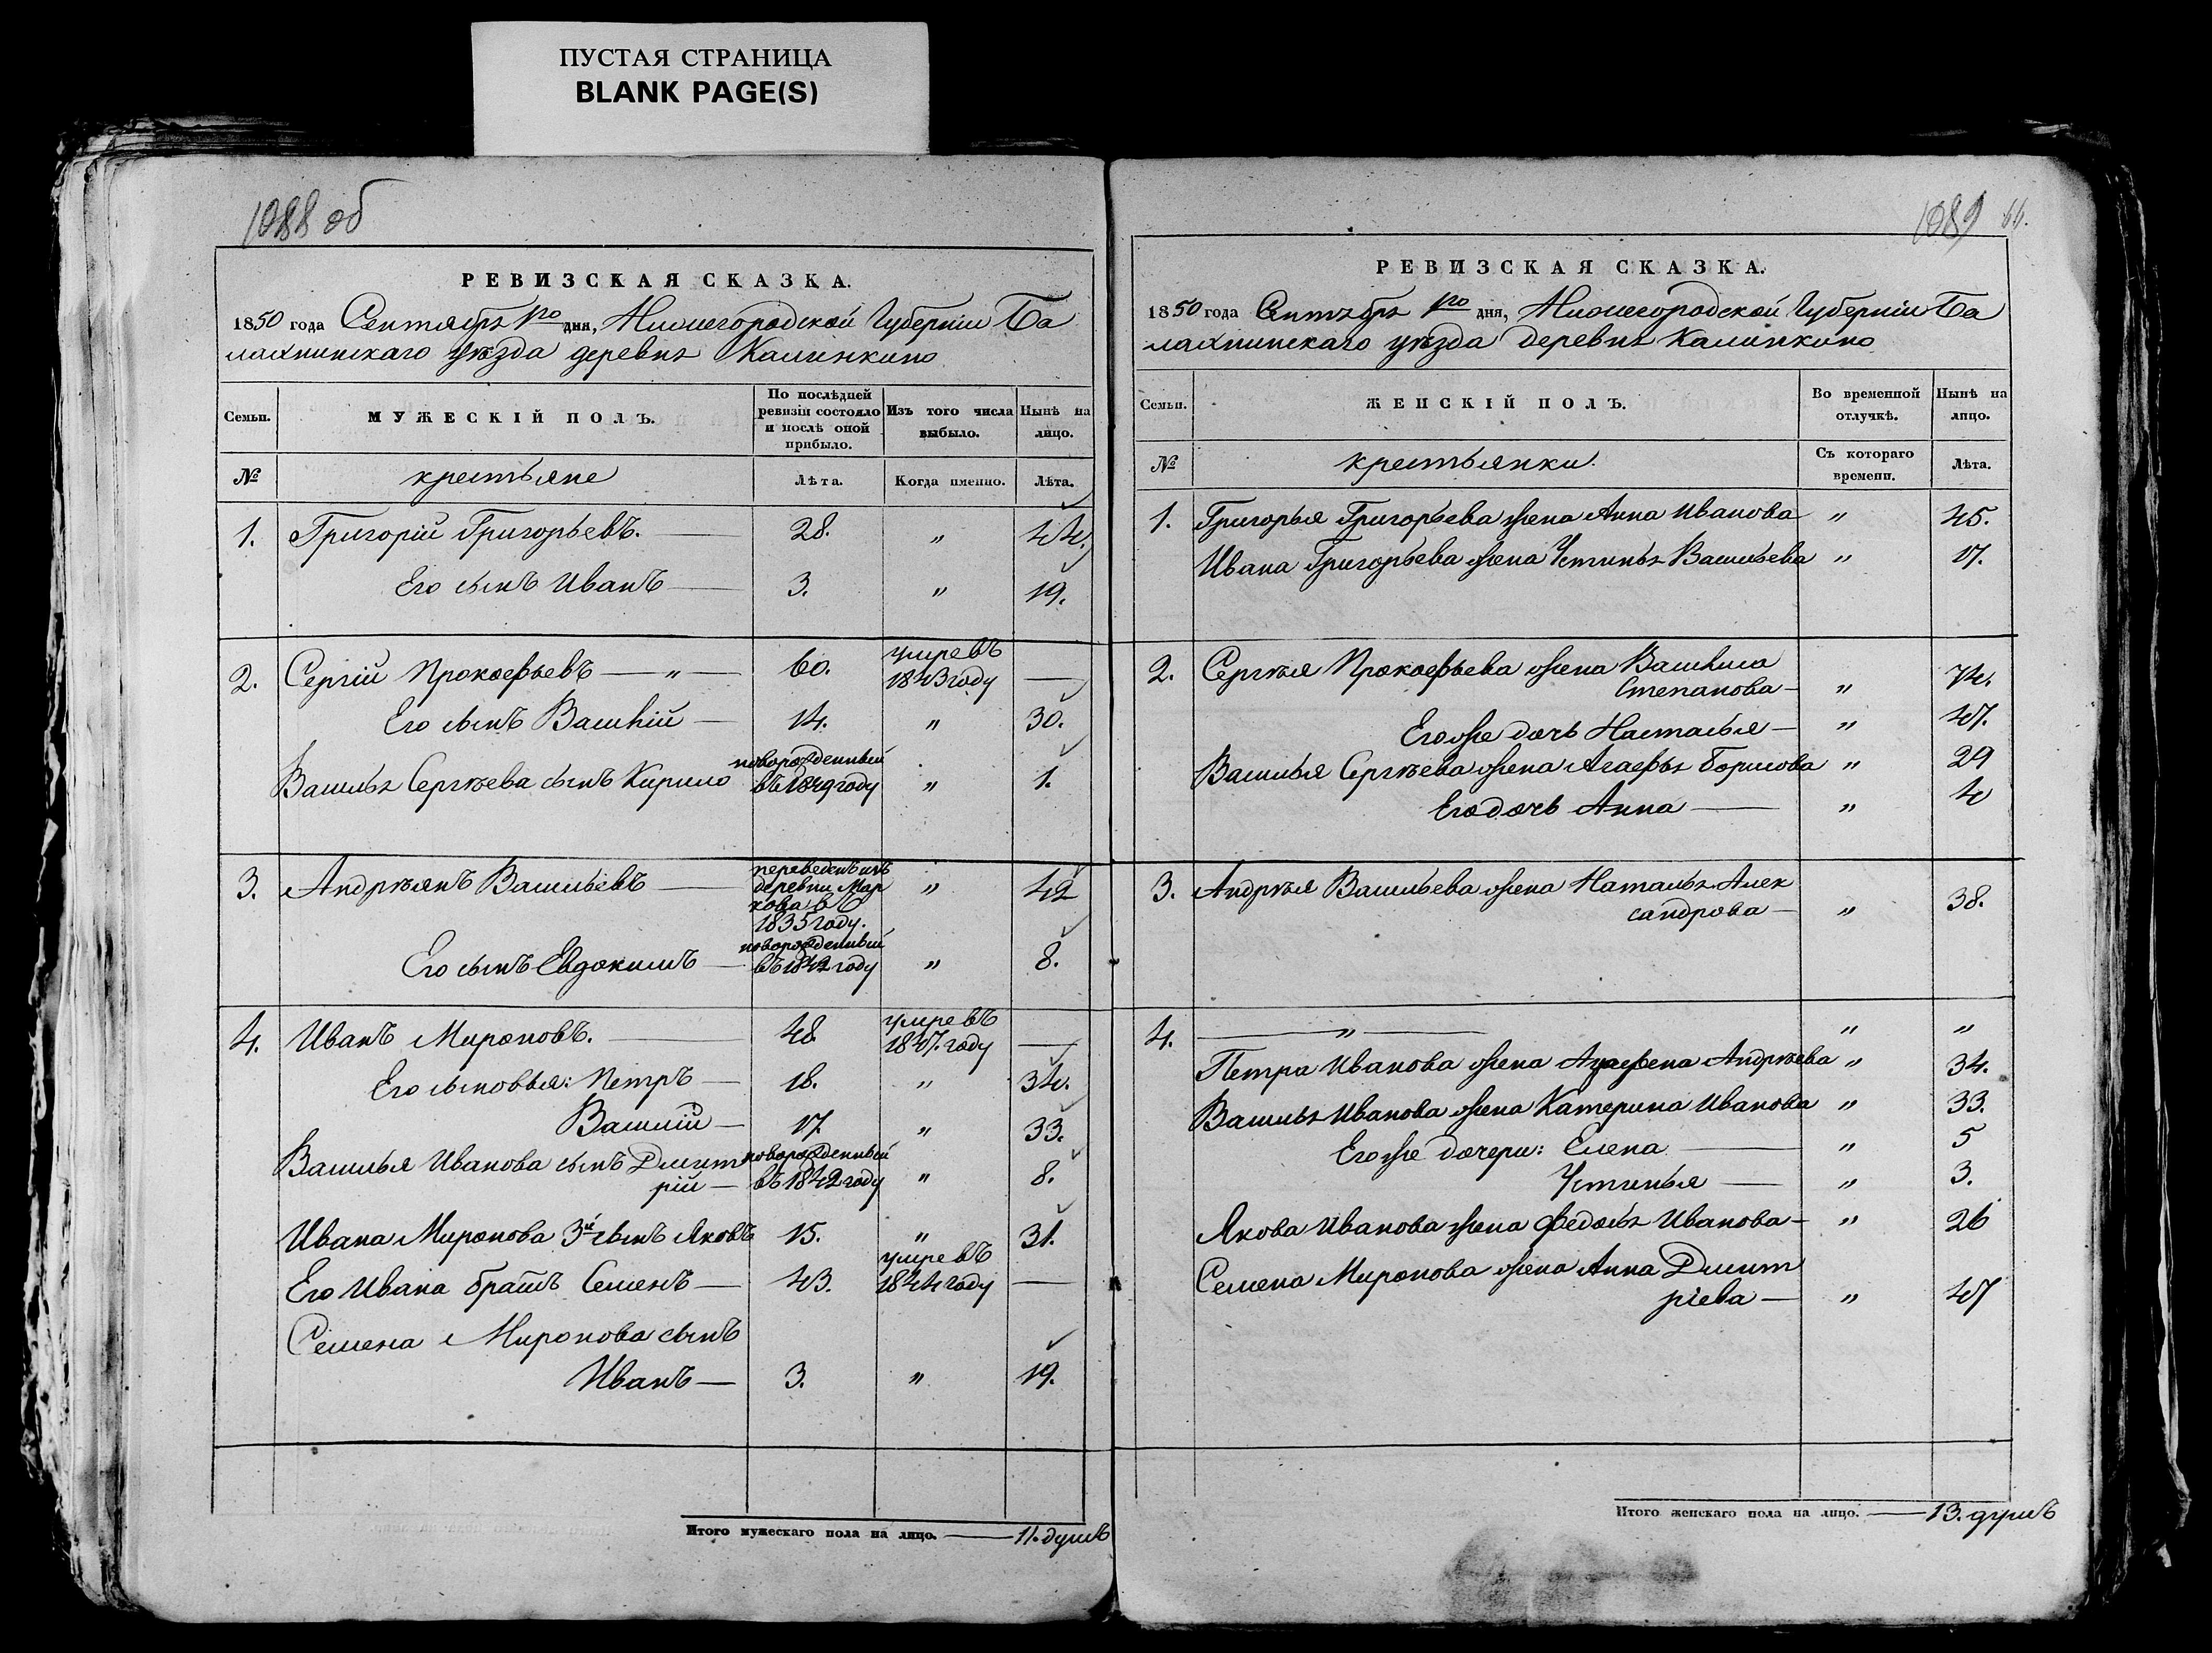 ПУСТАЯ СТРАНИЦА
BLANK PAGE(S)
1088 об
РЕВИЗСКАЯ СКАЗКА.
1850 года Сентября 1го дня, Нижегородской Губерніи Ба
лахнинскаго уѣзда деревня Калинкино
Семьи. МУЖЕСКІЙ ПОЛЪ. По послѣдней ревизіи состояло и послѣ оной прибыло. Изъ того числа выбыло. Нынѣ на лицо.
№ крестьяне Лѣта. Когда именно. Лѣта.
1. Григорій Григорьевъ. — 28. „ 44.
Его сынъ Иванъ — 3. „ 19.
2. Сергій Прокофьевъ — „ — 60. умре въ 1843 году —
Его сынъ Василій — 14. „ 30.
Василья Сергѣева сынъ Кирило новорожденный въ 1849 году „ 1.
3. Андрѣянъ Васильевъ — переведенъ изъ деревни Маркова в 1835 году. „ 42
Его сынъ Евдокимъ — новорожденный въ 1842 году „ 8.
4. Иванъ Мироновъ. — 48. умре въ 1847. году —
Его сыновья: Петръ — 18. „ 34.
Василій — 17. „ 33.
Василья Иванова сынъ Дмит
рій — новорожденный въ 1842 году „ 8.
Ивана Миронова 3й сынъ Яковъ 15. „ 31.
Его Ивана братъ Семенъ — 43. умре въ 1844 году —
Семена Миронова сынъ
Иванъ — 3. „ 19.
Итого мужескаго пола на лицо. — 11. душъ
1089
РЕВИЗСКАЯ СКАЗКА.
1850 года Сентября 1го дня, Нижегородской Губерніи Ба
лахнинскаго уѣзда деревня Калинкино
Семьи. ЖЕНСКІЙ ПОЛЪ. Во временной отлучкѣ. Нынѣ на лицо.
№ крестьянки. Съ котораго времени. Лѣта.
1. Григорья Григорьева жена Анна Иванова „ 45.
Ивана Григорьева жена Устинья Васильева „ 17.
2. Сергѣя Прокофьева жена Василиса
Степанова — „ 74.
Его же дочь Настасья — „ 47.
Василья Сергѣева жена Агафья Борисова „ 29
Его дочь Анна — „ 4
3. Андрѣя Васильева жена Наталья Алек
сандрова — „ 38.
4. — „ — „ „
Петра Иванова жена Аграфена Андрѣева „ 34.
Василья Иванова жена Катерина Иванова „ 33.
Его же дочери: Елена — „ 5
Устинья — „ 3.
Якова Иванова жена Федосья Иванова — „ 26
Семена Миронова жена Анна Дмит
ріева — „ 47
Итого женскаго пола на лицо. — 13. душъ